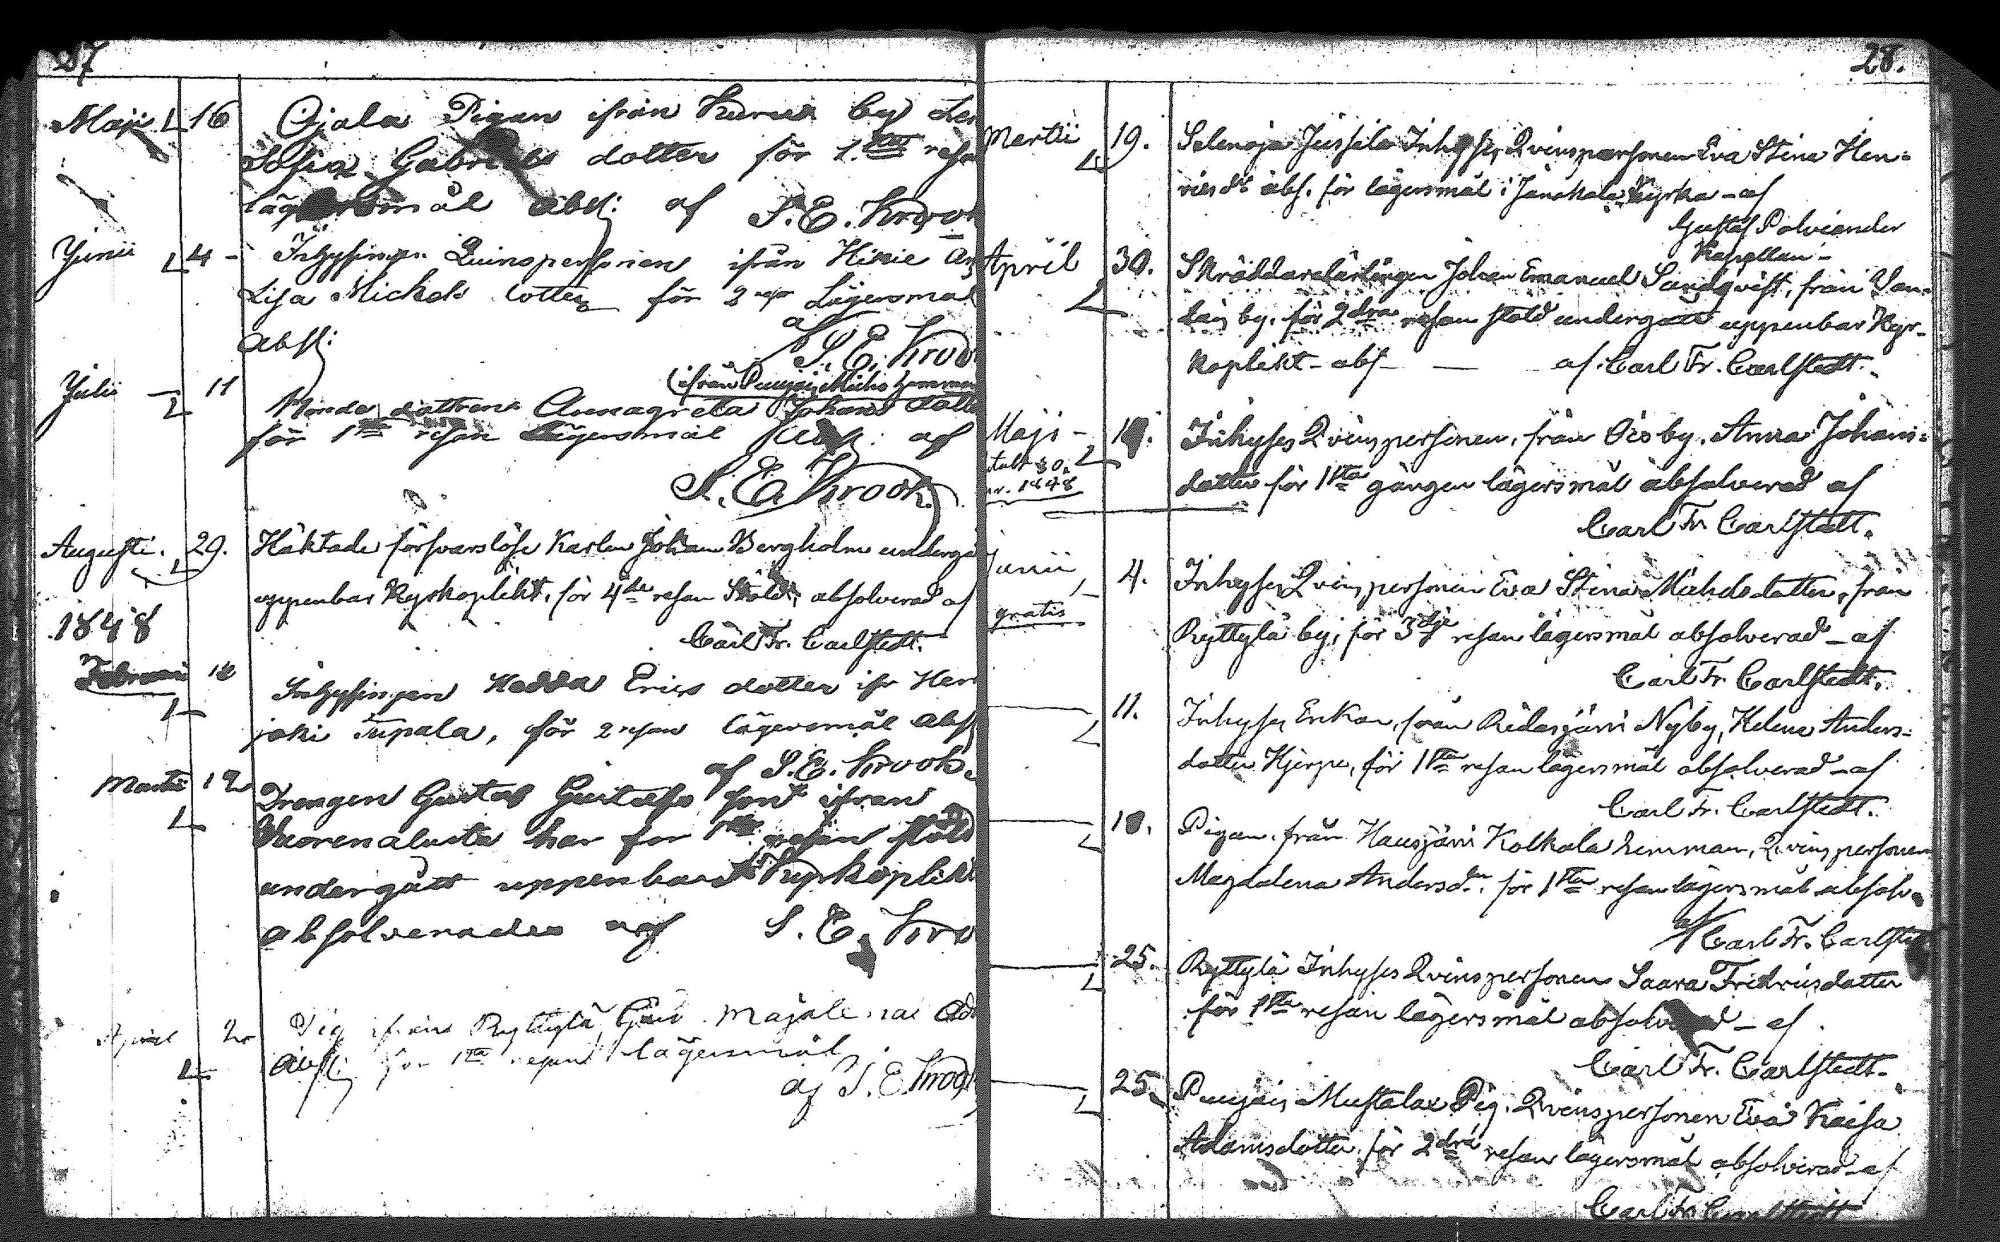 27
Maji 16 Ojala Pigan ifrån Kurus by
Sofia Gabriels dotter för 1sta resa
lägersmål abs: af S. E. Krook
Junii 4 - Inhysingen Quinspersonen ifrån Hikie
Lisa Mickels dotter för 2 resa Lägersmål
abs: af S. E. Krook
(ifrån Punjoij Michs hemman
Julii 11 dottren Annagreta Johans dotter
för 1sta resan lägersmål abs: af
S. E. Krook.
Augusti. 29. Häktade försvarslöse Karlen Johan Bergholm undergå
uppenbar Kyrkoplikt, för 4de resan Stöld, absolverad af
Carl Fr. Carlstedt.
1848
Februari Inhysingen Hedda Erics dotter ifr
joki Tupala, för 2 resan lägersmål abs
af S. E. Krook.
Martii 12 Drengen Gustaf Gustafs son ifrån
Vuorenalusta har for 1sta resan stöld
undergått uppenbar Kyrkoplikt
absolverades af S. E. Kro
April Pig ifrån Ryttylä
abs: för 1sta resan lägersmål
af S. E. Krook
28.
Martii 19. Selenoja Jussila Inhyses Qvinspersonen Eva Stina Hen-
rics dr abs. för lägersmål i Janakala Kyrka - af
Gustaf Polviander
Kapellan -
April 30. Skräddarelärlingen Johan Emanuel Sandqvist, från Van-
by, för 2dra resan stöld undergått uppenbar Kyr-
koplikt - abs - af. Carl Fr. Carlstedt.
Maji - Inhyses Qvinspersonen, från Oisby, Anna Johans-
dotter för 1sta gången lägersmål absolverad af
1848
Carl Fr. Carlstedt.
Junii 4. Inhyses Qvinspersonen Eva Stina Michelsdotter, från
gratis Ryttylä by, för 3dje resan lägersmål absolverad - af
Carl Fr. Carlstedt.
11. Inhyses Enkan, från Ridasjärvi Nyby, Helena Anders-
dotter Hjerpe, för 1sta resan lägersmål absolverad - af
Carl Fr. Carlstedt.
18. Pigan från Hausjärvi Kolkala hemman, Qvinspersonen
Magdalena Andersdr. för 1sta resan lägersmål absolv.
af Carl Fr. Carlste
25. Ryttylä Inhyses Qvinspersonen Saara Fredricsdotter
för 1sta resan lägersmål absolverad - af
Carl Fr. Carlstedt.
25. Punjois Mustalax Pig. Qvinspersonen Eva Kaisa
Adamsdotter, för 2dra resan lägersmål absolverad - af
Carl Fr. Carlstedt